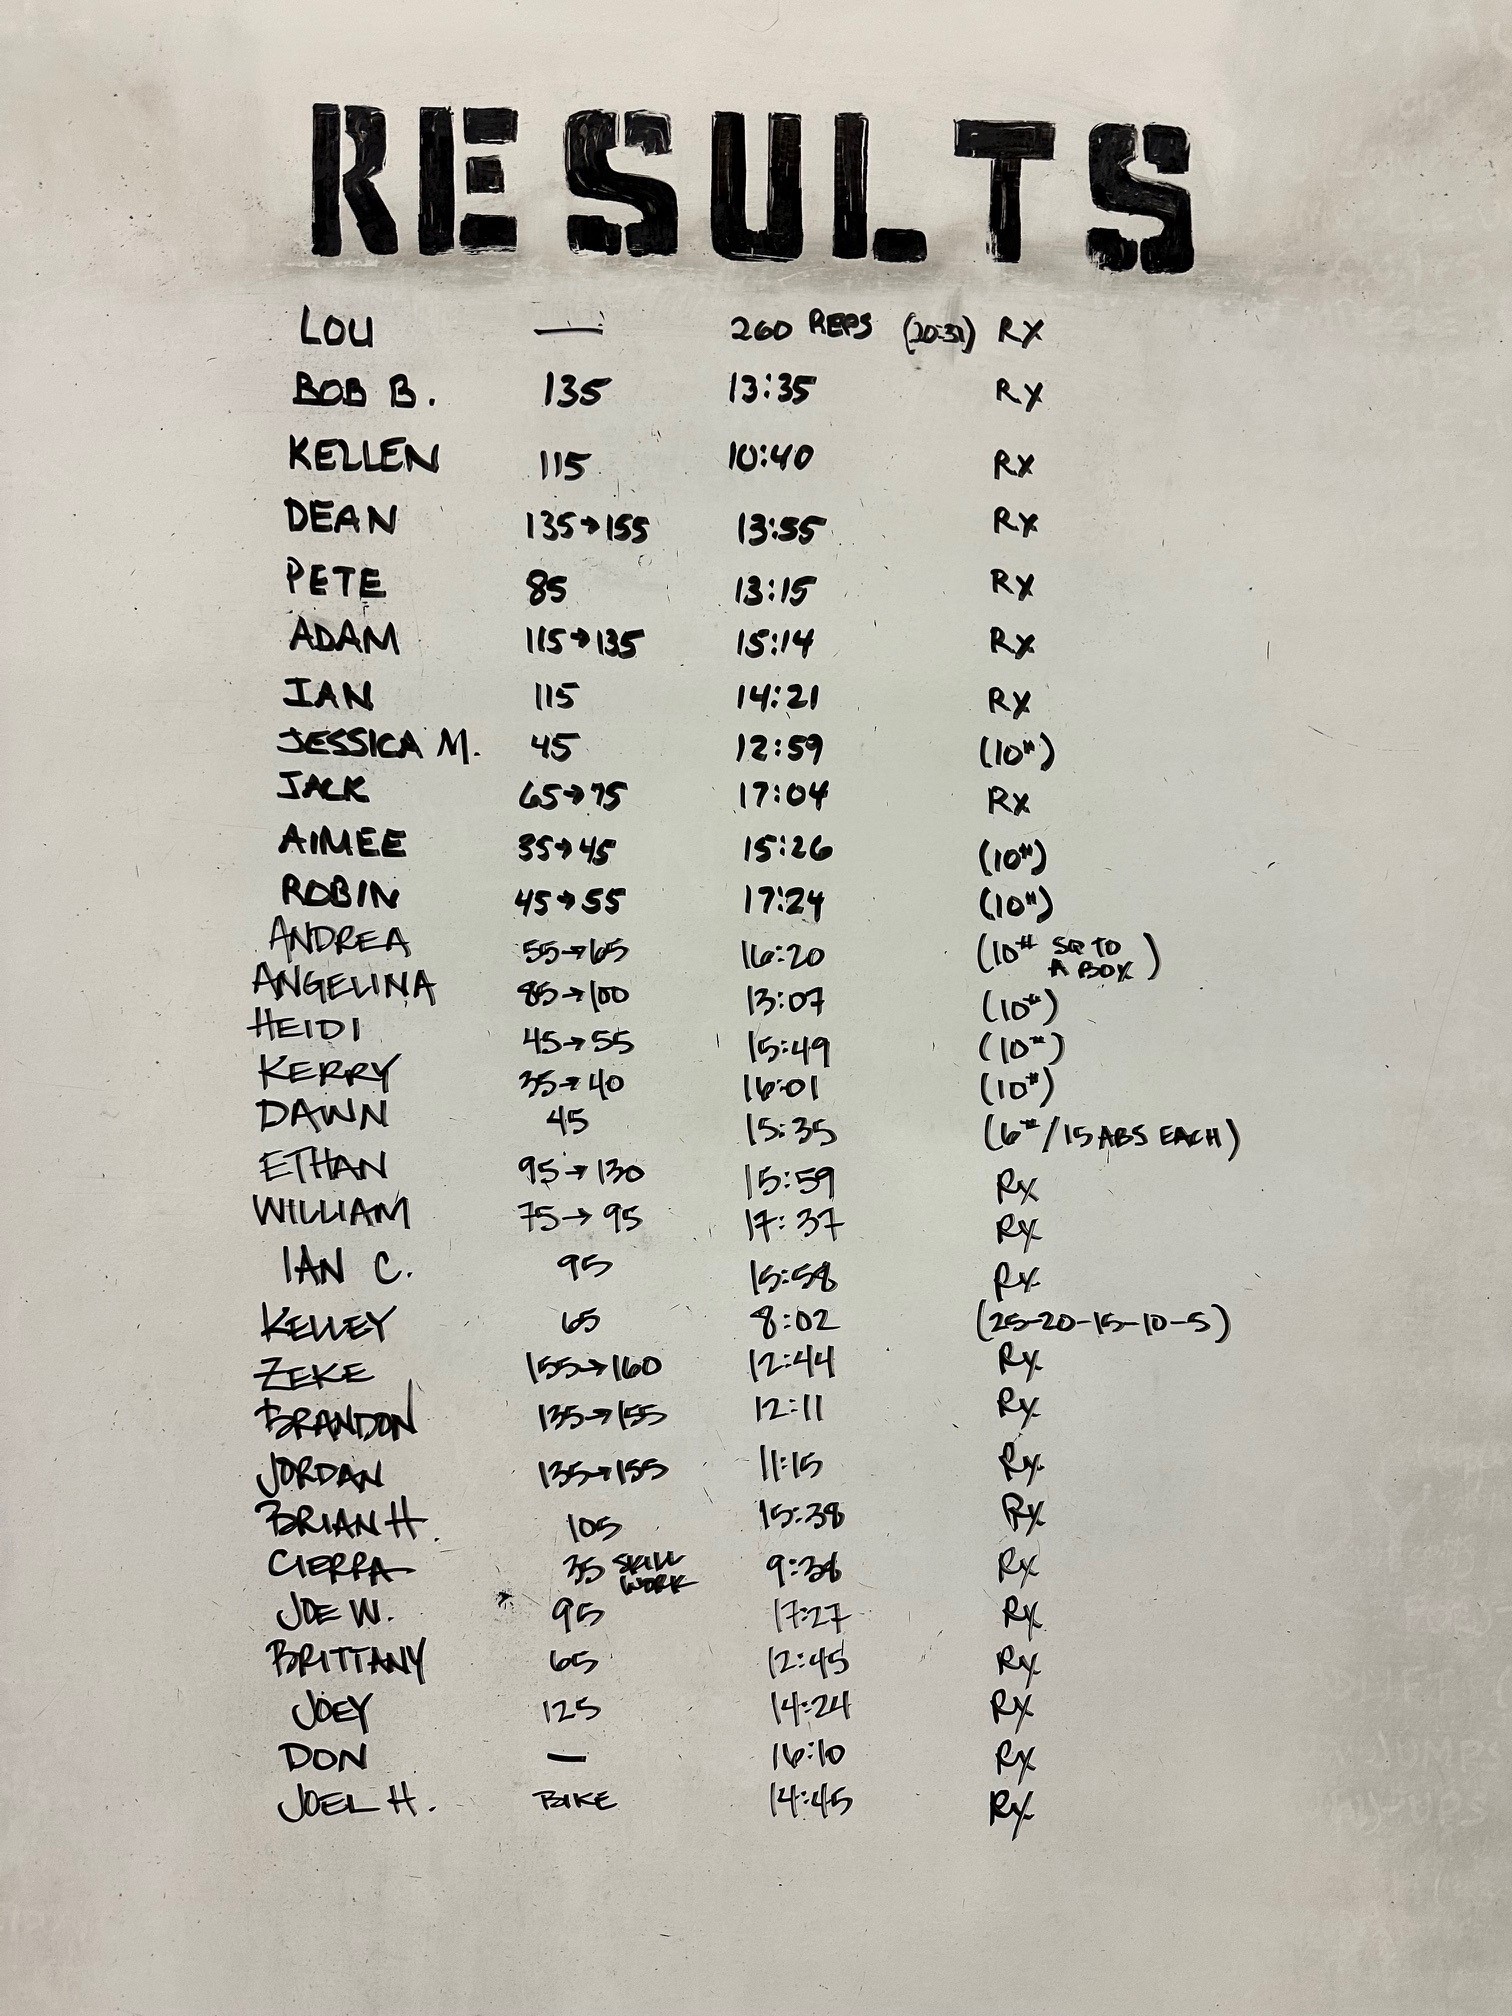 RESULTS
LOU — 260 REPS (20:31) RX
BOB B. 135 13:35 RX
KELLEN 115 10:40 RX
DEAN 135→155 13:55 RX
PETE 85 13:15 RX
ADAM 115→135 15:14 RX
IAN 115 14:21 RX
JESSICA M. 45 12:59 (10#)
JACK 65→75 17:04 RX
AIMEE 35→45 15:26 (10#)
ROBIN 45→55 17:24 (10#)
ANDREA 55→65 16:20 (10# SQ TO
A BOX)
ANGELINA 85→100 13:07 (10#)
HEIDI 45→55 15:49 (10#)
KERRY 35→40 16:01 (10#)
DAWN 45 15:35 (6#/15 ABS EACH)
ETHAN 95→130 15:59 Rx
WILLIAM 75→95 17:37 Rx
IAN C. 95 15:58 Rx
KELLEY 65 8:02 (25-20-15-10-5)
ZEKE 155→160 12:44 Rx
BRANDON 135→155 12:11 Rx
JORDAN 135→155 11:15 Rx
BRIAN H. 105 15:38 Rx
CIERRA 35 SKILL 9:38 Rx
WORK
JOE W. 95 17:27 Rx
BRITTANY 65 12:45 Rx
JOEY 125 14:24 Rx
DON — 16:10 Rx
JOEL H. BIKE 14:45 Rx